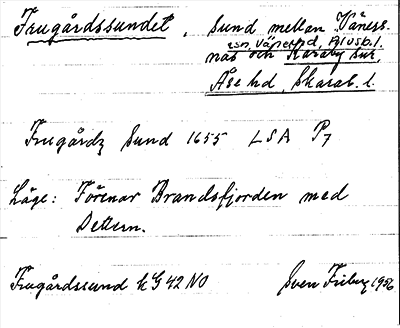 Frugårdssundet, Sund mellan Väners-
näs och Karaby sn,
Åse hd Skarab. l.
Frugårdz Sund 1655 LSA P7
Läge: Förenar Brandsfjorden med
Dettern.
Frugårdssund kG 42 NO Sven Friberg 1956